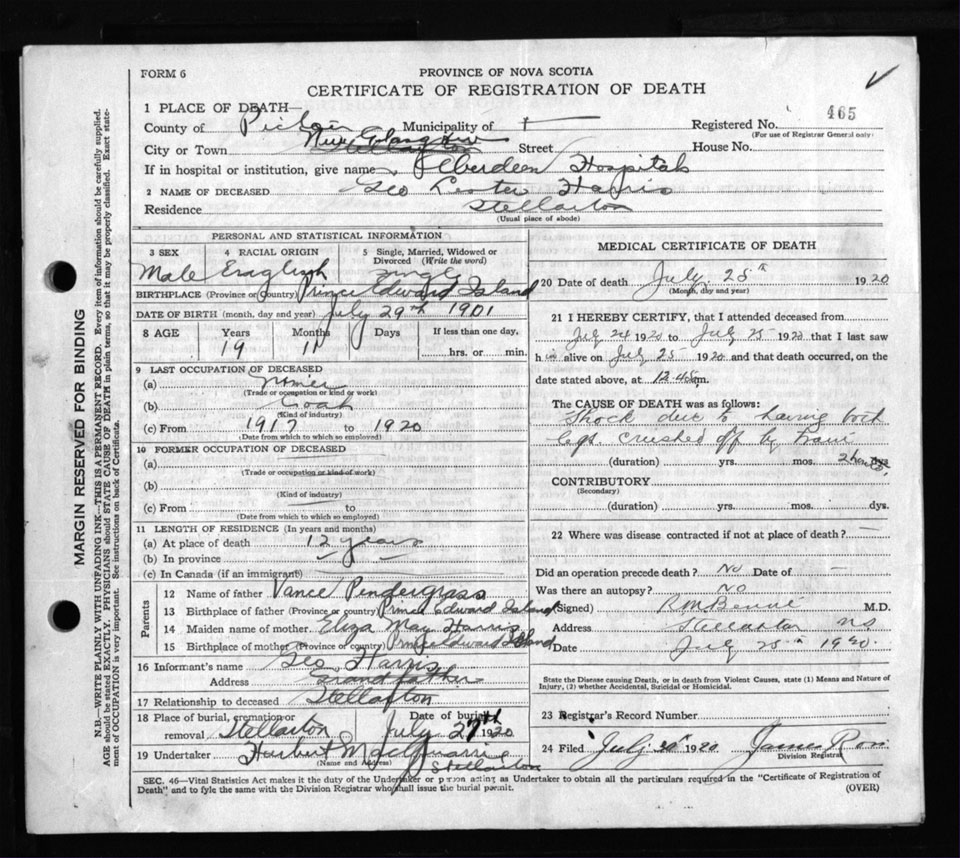 FORM 6
PROVINCE OF NOVA SCOTIA
CERTIFICATE OF REGISTRATION OF DEATH
1 PLACE OF DEATH—
County of Pictou Municipality of Registered No. 465
(For use of Registrar General only)
City or Town New Glasgow Street House No.
If in hospital or institution, give name Aberdeen Hospital
2 NAME OF DECEASED Geo Lester Harris
Residence Stellarton
(Usual place of abode)
PERSONAL AND STATISTICAL INFORMATION
3 SEX 4 RACIAL ORIGIN 5 Single, Married, Widowed or Divorced (Write the word)
Male English Single
BIRTHPLACE (Province or Country) Prince Edward Island
DATE OF BIRTH (month, day and year) July 29th 1901
8 AGE Years Months Days If less than one day,
19 11 hrs. or min.
9 LAST OCCUPATION OF DECEASED
(a) Miner
(Trade or occupation or kind or work)
(b) Coal
(Kind of industry)
(c) From 1917 to 1920
(Date from which to which so employed)
10 FORMER OCCUPATION OF DECEASED
(a)
(Trade or occupation or kind of work)
(b)
(Kind of industry)
(c) From to
(Date from which to which so employed)
11 LENGTH OF RESIDENCE (In years and months)
(a) At place of death 12 years
(b) In province
(c) In Canada (if an immigrant)
Parents
12 Name of father Vance Pendergrass
13 Birthplace of father (Province or country) Prince Edward Island
14 Maiden name of mother Eliza May Harris
15 Birthplace of mother (Province or country) Prince Edward Island
16 Informant's name Geo Harris
Address Grandfather
17 Relationship to deceased Stellarton
18 Place of burial, cremation or removal Stellarton Date of burial July 27th 1920
19 Undertaker Herbert
(Name and Address) Stellarton
MEDICAL CERTIFICATE OF DEATH
20 Date of death July 25th 1920
(Month, day and year)
21 I HEREBY CERTIFY, that I attended deceased from
July 24 1920 to July 25 1920 that I last saw
h im alive on July 25 1920 and that death occurred, on the
date stated above, at 12.45 m.
The CAUSE OF DEATH was as follows:
Shock due to having both
legs crushed off by train
(duration) yrs. mos. 2 hours dys.
CONTRIBUTORY
(Secondary)
(duration) yrs. mos. dys.
22 Where was disease contracted if not at place of death? —
Did an operation precede death? No Date of —
Was there an autopsy? No
(Signed) M.D.
Address Stellarton NS
Date July 25th 1920
State the Disease causing Death, or in death from Violent Causes, state (1) Means and Nature of
Injury, (2) whether Accidental, Suicidal or Homicidal.
23 Registrar's Record Number
24 Filed July 1920 James
Division Registrar
SEC. 46—Vital Statistics Act makes it the duty of the Undertaker or person acting as Undertaker to obtain all the particulars required in the "Certificate of Registration of
Death" and to fyle the same with the Division Registrar who shall issue the burial permit. (OVER)
MARGIN RESERVED FOR BINDING
N.B.—WRITE PLAINLY WITH UNFADING INK—THIS IS A PERMANENT RECORD. Every item of information should be carefully supplied.
AGE should be stated EXACTLY. PHYSICIANS should STATE CAUSE OF DEATH in plain terms, so that it may be properly classified. Exact statement of OCCUPATION is very important. See instructions on back of Certificate.